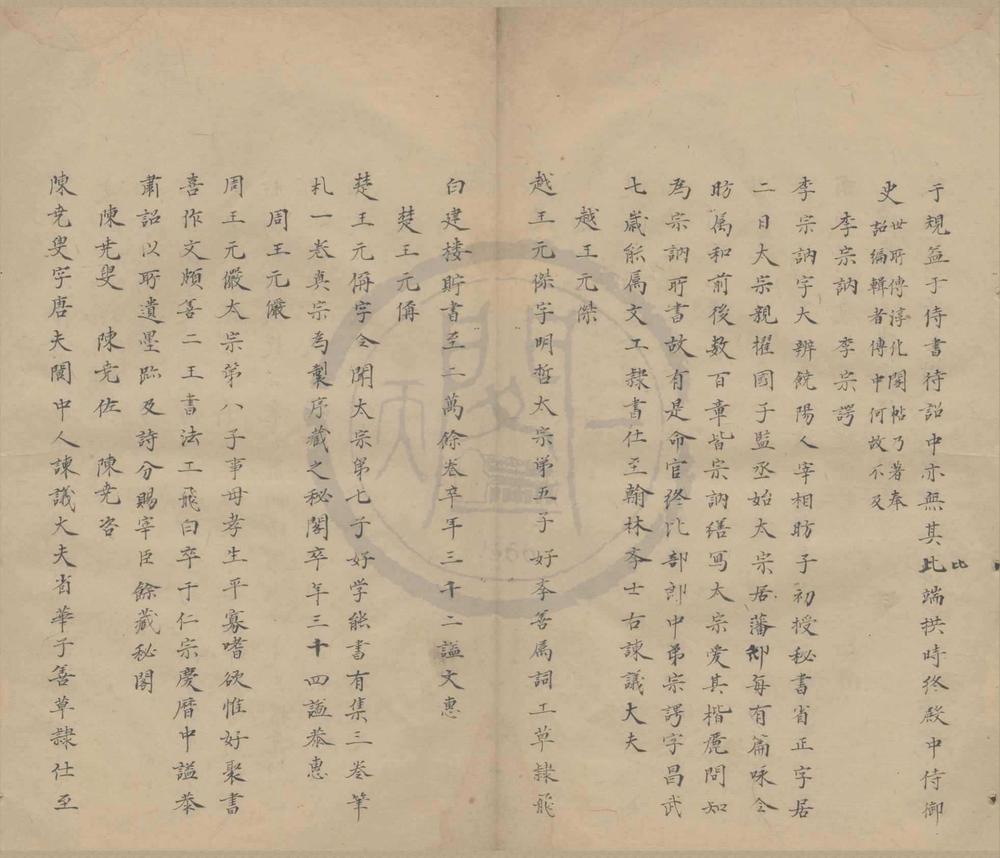 于規益于侍書待詔中亦無其此端拱時終殿中侍御
比
史世所傳淳化閣帖乃著奉
詔編輯者傳中何故不及
李宗訥 李宗諤
李宗訥字大辨饒陽人宰相昉子初授秘書省正字居
二日太宗親擢國子監丞始太宗居藩邸每有篇咏令
昉属和前後数百章皆宗訥繕写太宗愛其楷麗問知
為宗訥所書故有是命官終比部郎中弟宗諤字昌武
七歲能属文工隸書仕至翰林李士右諫議大夫
越王元傑
越王元傑字明哲太宗弟五子好李善属詞工草隸飛
白建楼貯書至二萬餘卷卒年三十二謚文惠
楚王元偁
楚王元偁字令聞太宗第七子好学能書有集三卷筆
札一卷真宗為製序藏之秘閣卒年三十四謚恭惠
周王元儼
周王元儼太宗第八子事母孝生平寡嗜欲惟好聚書
喜作文頗善二王書法工飛白卒于仁宗慶曆中謚恭
肅詔以所遺墨跡及詩分賜宰臣餘藏秘閣
陳尭叟 陳尭佐 陳尭咨
陳尭叟字唐夫閬中人諫議大夫省華子善草隸仕至